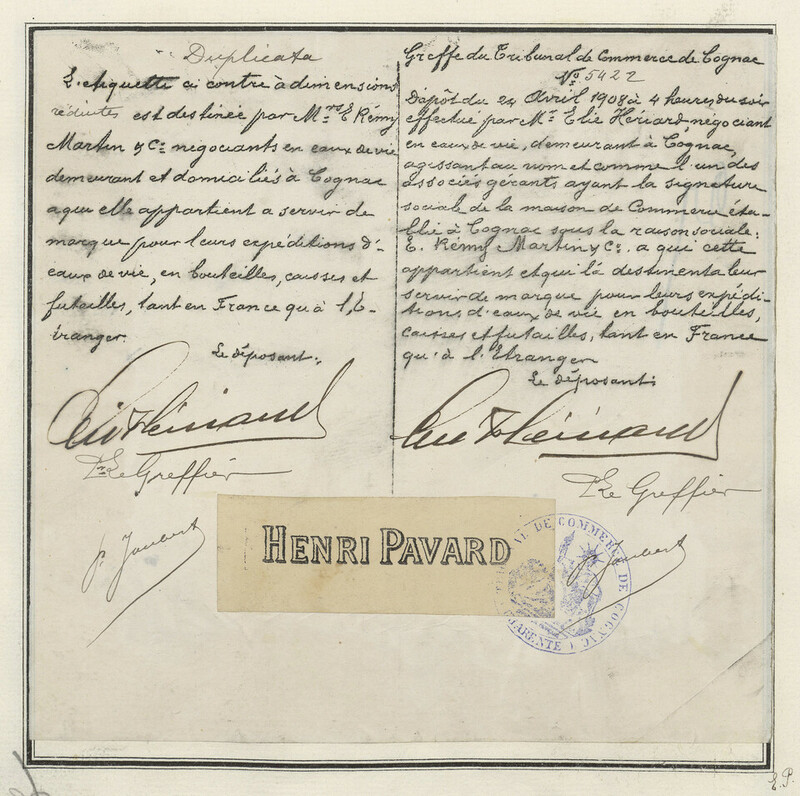 Duplicata
L'etiquette ci contre à dimensions
réduites est destinée par Mrs E. Rémy
Martin & Co négociants en eaux de vie
demeurant et domiciliés à Cognac
a qui elle appartient a servir de
marque pour leurs expéditions d'-
eaux de vie, en bouteilles, caisses et
futailles, tant en France qu'à l'E-
tranger.
Le déposant:
Pr Le Greffier
Greffe du Tribunal de Commerce de Cognac
No 5422
Dépôt du 24 Avril 1908 à 4 heures du soir
effectué par Mr Elie Hériard, négociant
en eaux de vie, demeurant à Cognac,
agissant au nom et comme l'un des
associés gérants ayant la signature
sociale de la maison de Commerce éta-
blie à Cognac sous la raison sociale:
E. Rémy Martin & Co. a qui cette
appartient et qui la destine a leur
servir de marque pour leurs expédi-
tions d'eaux de vie en bouteilles,
caisses et futailles, tant en France
qu'à l'Etranger
Le déposant:
Pr Le Greffier
p. Joubert
HENRI PAVARD
TRIBUNAL DE COMMERCE DE COGNAC
CHARENTE
p. Joubert
E.P.